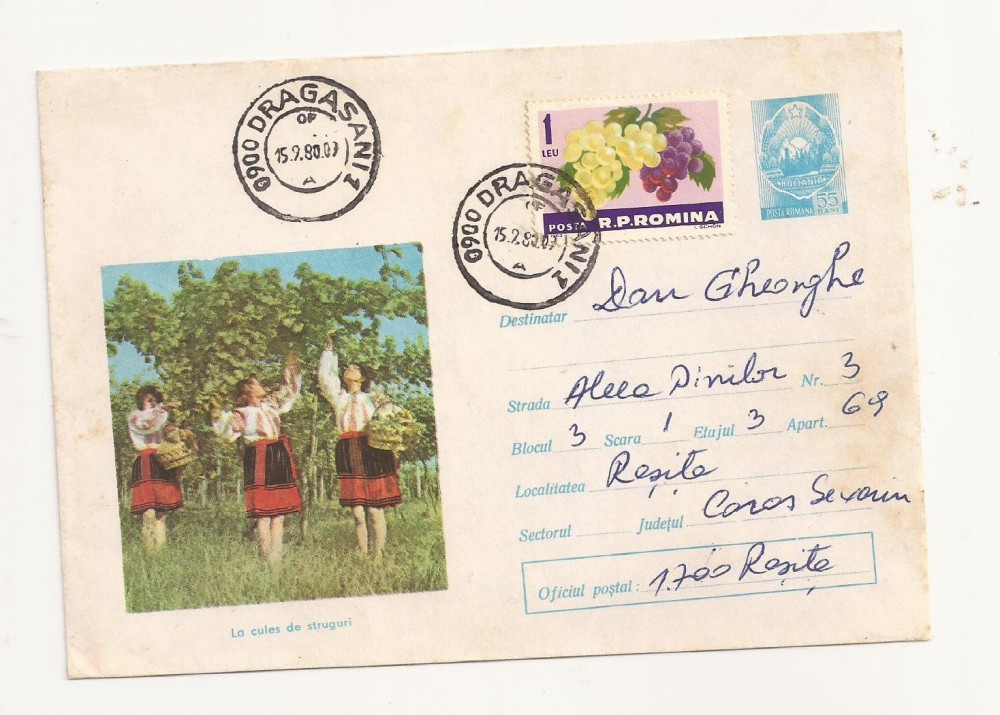 0900 DRAGASANI 1
OF
15.9.80.07
A
1
LEU
POSTA R.P.ROMINA
I. SCHÖN
ROMANIA
POSTA ROMANA 55
BANI
0900 DRAGASANI 1
OF
15.9.80.07
A
Destinatar Dan Gheorghe
Strada Aleea Pinilor Nr. 3
Blocul 3 Scara 1 Etajul 3 Apart. 69
Localitatea Reșița
Sectorul Județul Caras Severin
Oficiul poștal: 1700 Reșița
La cules de struguri